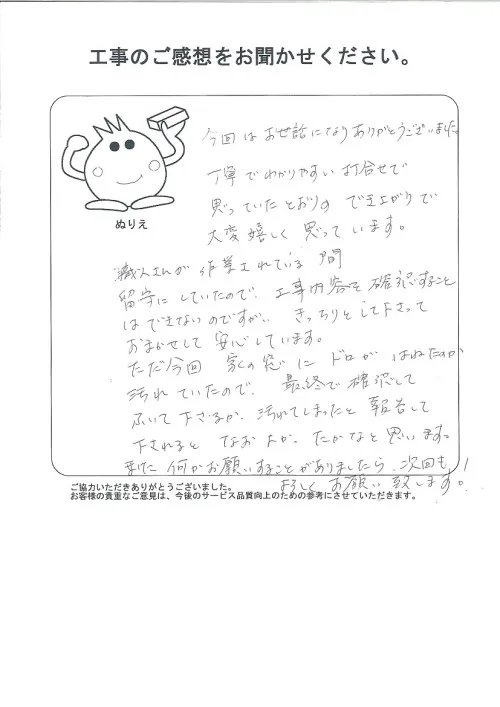 工事のご感想をお聞かせください。
今回はお世話になりありがとうございました。
丁寧でわかりやすい打合せで
思っていたとおりの でき上がりで
大変嬉しく思っています。
ぬりえ
職人さんが作業されている間
留守にしていたので、工事内容を確認すること
はできないのですが、きっちりとして下さって
おまかせして安心しています。
ただ今回 家の窓に ドロが はねたのか
汚れていたので、最終で確認して
ふいて下さるか、汚れてしまったと報告して
下されると なおよかったかなと思います。
また何かお願いすることがありましたら、次回も
よろしくお願い致します。!
ご協力いただきありがとうございました。
お客様の貴重なご意見は、今後のサービス品質向上のための参考にさせていただきます。